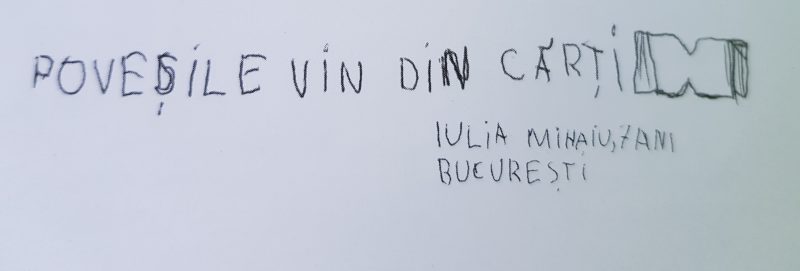 POVEȘILE VIN DIN CĂRȚI
IULIA MIHAIU, 7 ANI
BUCUREȘTI